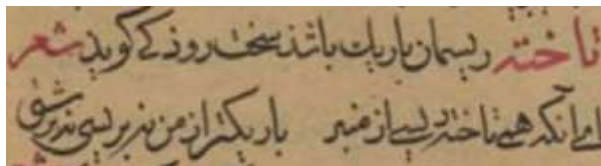 تاخته ریسمان باریك باشذ سخت روذکی کوید شعر
آنکه همی تاخته ریسی از باریکتر از من نه بریسی نه برشتی